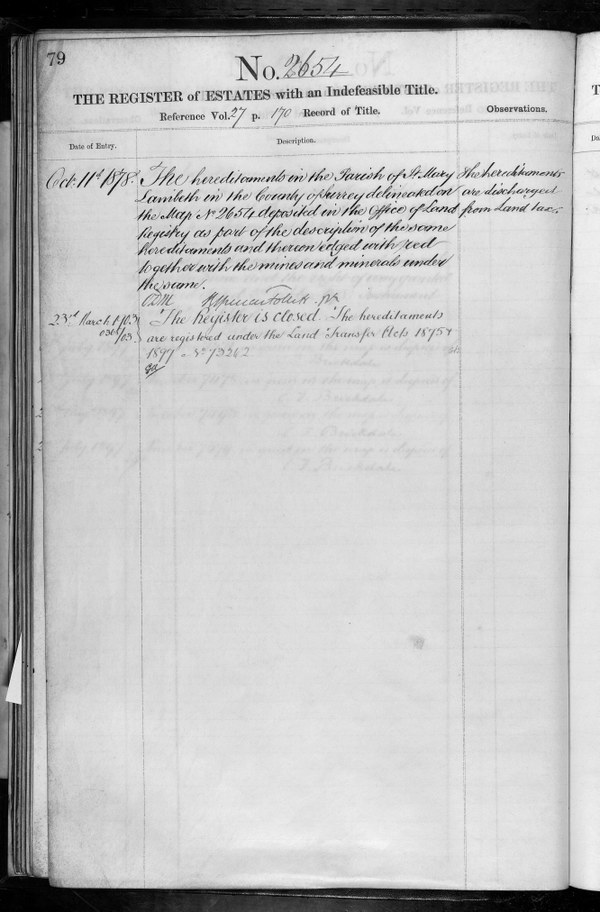 79
No. 2654
THE REGISTER of ESTATES with an Indefeasible Title.
Reference Vol. 27 p. 170 Record of Title.
Observations.
Date of Entry.
Description.
Oct. 11th 1878. The hereditaments in the Parish of St. Mary
Lambeth in the County of Surrey delineated on
the Map No 2654 deposited in the Office of Land
Registry as part of the description of the same
hereditaments and thereon edged with red
together with the mines and minerals under
the same.
The hereditaments
are discharged
from Land tax.
23rd March 1903
The Register is closed. The hereditaments
are registered under the Land Transfer Acts 1875 &
1897 No 73262